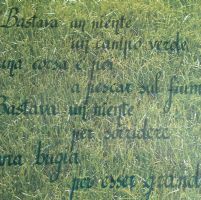 Bastava un niente
un campo verde
una corsa e poi
a pescar sul fium
Bastava un niente
per sorridere
una bugia
per esser grand